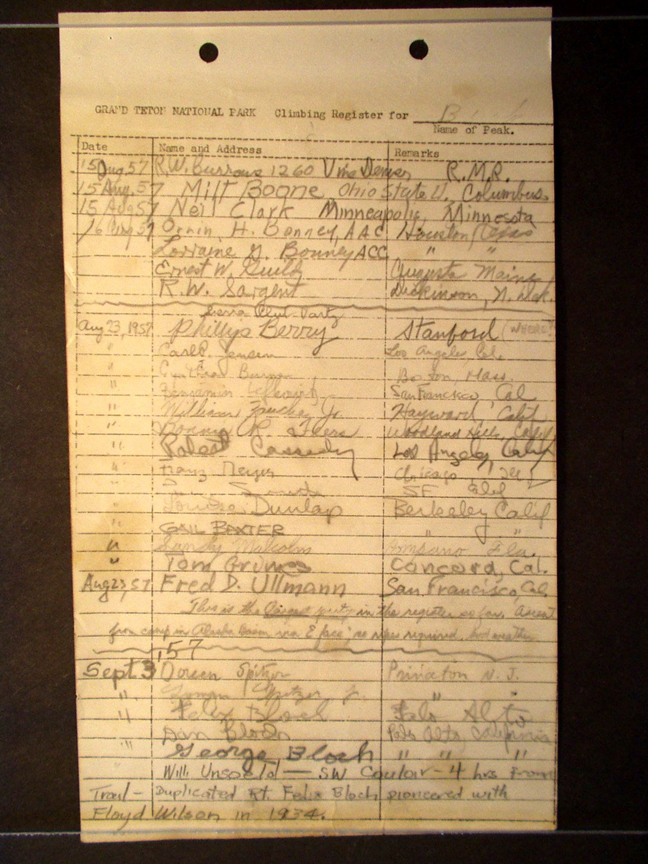 GRAND TETON NATIONAL PARK Climbing Register for
Name of Peak.
Date Name and Address Remarks
15 Aug. 57 R.W. Burrows 1260 Vine Denver R.M.R.
15 Aug. 57 Milt Boone Ohio State U. Columbus
15 Aug 57 Neil Clark Minneapolis, Minnesota
16 Aug 57 Orrin H. Bonney, AAC Houston, Texas
Lorraine G. Bonney ACC " "
Ernest W. Augusta Maine
R.W. Sargent Dickinson, N. Dak.
Sierra Club Party
Aug 23, 1957 Phillip Berry Stanford (WHERE?)
" Carl P. Jensen Los Angeles, Cal.
" Boston, Mass.
" Benjamin San Francisco, Cal
" William Jr. Hayward, Calif
" Woodland Hills, Calif
" Robert Cassedy Los Angeles Calif
" Franz Chicago, Ill
" SF Calif
" Louise Dunlap Berkeley Calif
" GAIL BAXTER " "
" Sandy Malcolm Pompano Fla.
" Tom Grimes Concord, Cal.
Aug 23, 57 Fred D. Ullmann San Francisco, Cal.
This is the largest party in the register so far. Ascent
from camp in Alaska Basin via E face; no ropes required. bad weather
, 57
Sept 3 Doreen Spitzer Princeton N.J.
" Lyman Spitzer Jr. "
" Felix Bloch Palo Alto
" Dan Bloch Palo Alto California
" George Bloch " " "
Willi Unsoeld — SW Couloir - 4 hrs From
Trail - Duplicated Rt. Felix Bloch pioneered with
Floyd Wilson in 1934.